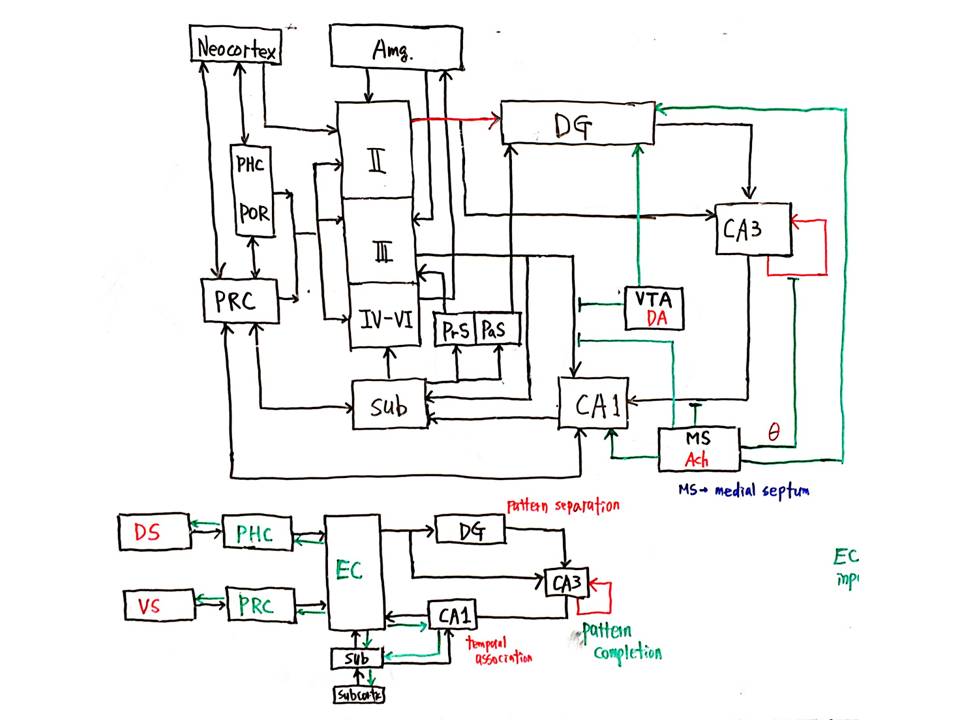 Neocortex
Amg.
II
DG
PHC
POR
CA3
III
PRC
VTA
DA
IV-VI
PrS
PaS
Sub
CA1
MS
Ach
θ
MS→ medial septum
pattern separation
DS
PHC
DG
EC
EC
CA3
VS
PRC
CA1
pattern
completion
temporal
association
Sub